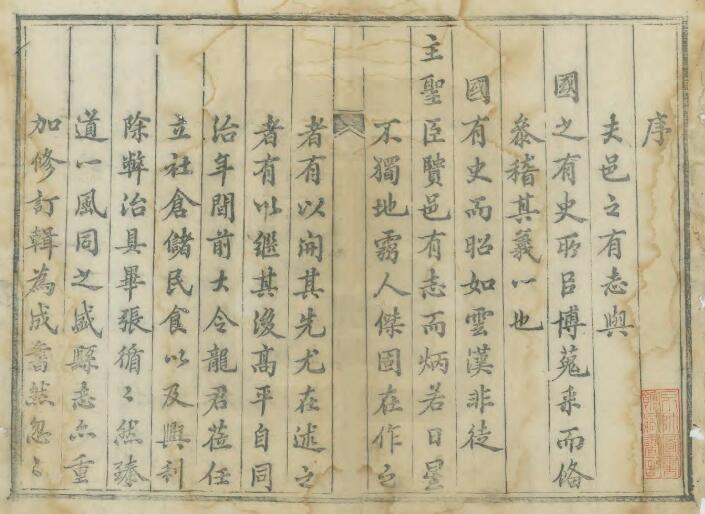 序
夫邑之有志與
國之有史所㠯博蒐采而脩
叅稽其義一也
國有史而昭如雲漢非徒
主聖臣賢邑有志而炳若日星
不獨地靈人傑固在作之
者有以開其先尤在述之
者有以繼其後高平自同
治年間前大令龍君莅任
立社倉儲民食以及興利
除弊治具畢張循〻然臻
道一風同之盛縣志亦重
加修訂輯為成書然忽〻